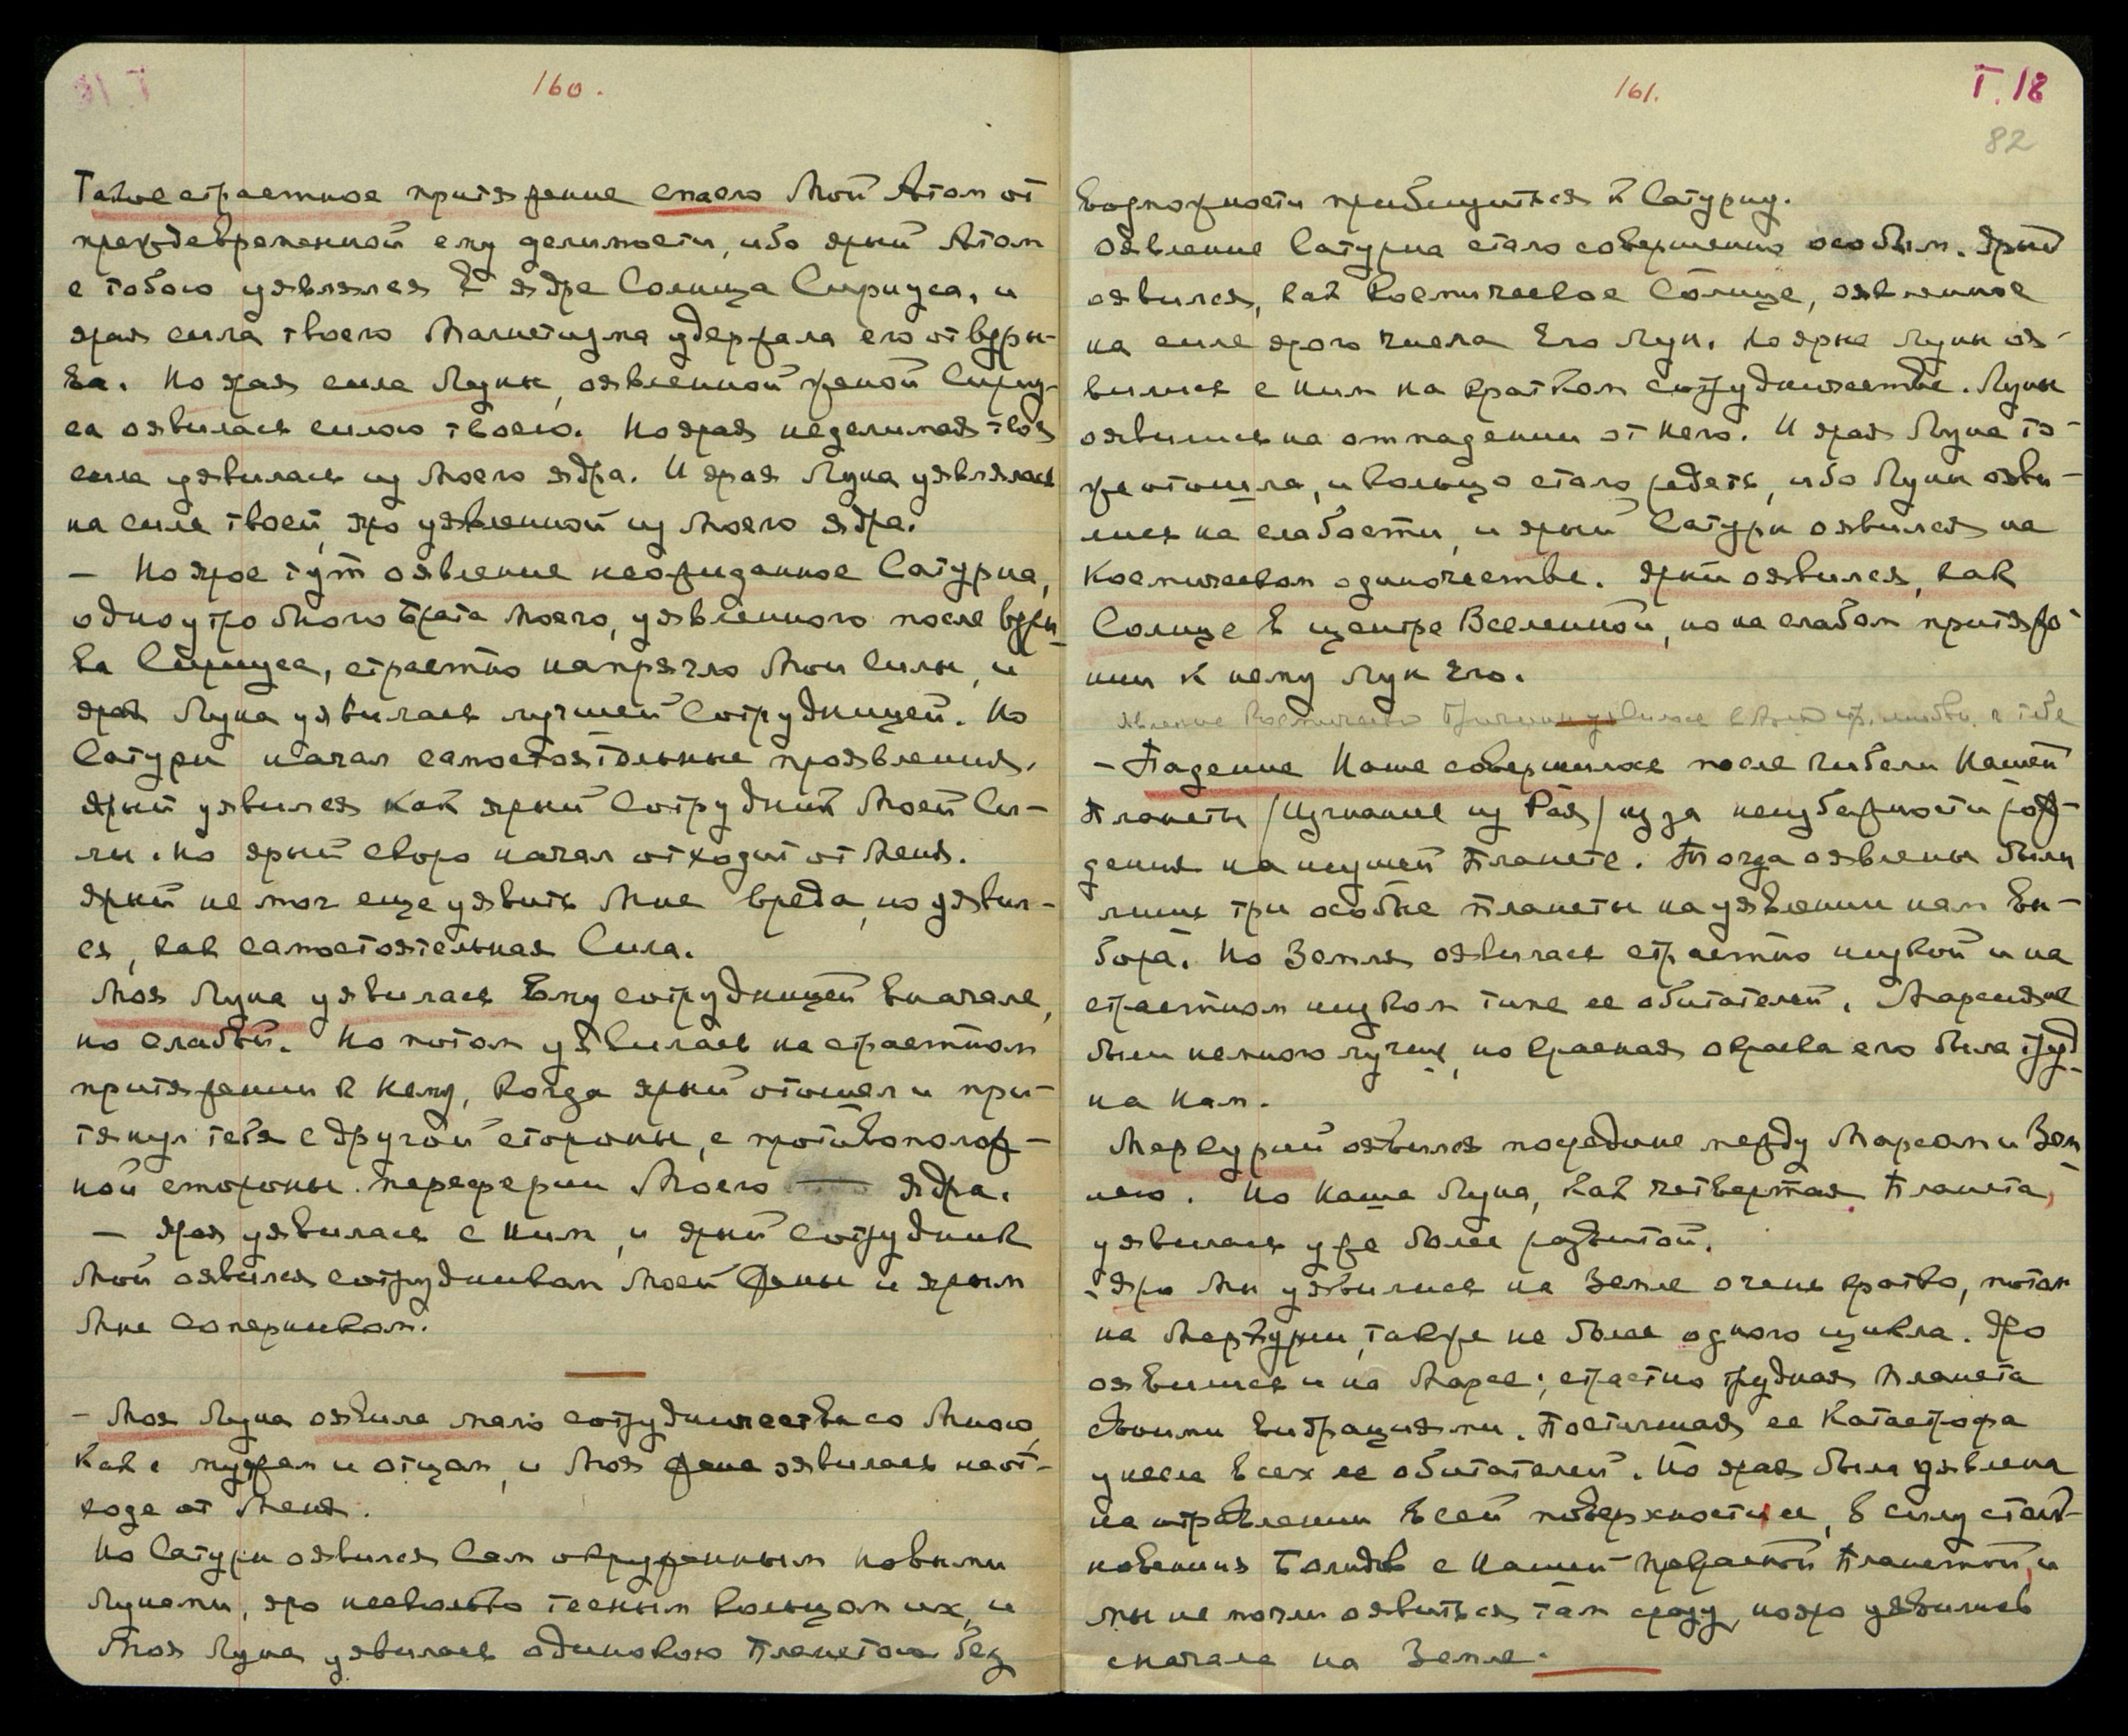 160.
Такое страстное притяжение спасло Мой Атом от
преждевременной ему делимости, ибо ярый Атом
с тобою уявлялся в ядре Солнца Сириуса, и
ярая сила твоего Магнетизма удержала его от взры-
ва. Но ярая сила Луны, оявленной женой Сириу-
са оявилась силою твоею. Но ярая неделимая твоя
сила уявилась из Моего ядра. И ярая Луна уявлялась
на силе твоей, яро уявленной из Моего ядра.
— Но ярое тут оявление неожиданное Сатурна,
одноутробного Брата Моего, уявленного после взры-
ва Сириуса, страстно напрягло Мои Силы, и
ярая Луна уявилась лучшей Сотрудницей. Но
Сатурн начал самостоятельные проявления.
Ярый уявился как ярый Сотрудник Моей Си-
лы. Но ярый скоро начал отходит от Меня.
Ярый не мог еще уявить Мне вреда, но уявил-
ся, как самостоятельная Сила.
Моя Луна уявилась Ему сотрудницей вначале,
но слабой. Но потом уявилась на страстном
притяжении к Нему, когда ярый отошел и при-
тянул тебя с другой стороны, с противополож-
ной стороны периферии Моего — ядра.
— Ярая уявилась с Ним, и ярый Сотрудник
Мой оявился сотрудником Моей Жены и ярым
Мне Соперником.
- Моя Луна оявила мало сотрудничества со Мною,
как с мужем и отцом, и Моя Жена оявилась на от-
ходе от Меня.
Но Сатурн оявился Сам окруженным новыми
Лунами, яро несколько тесным кольцом их, и
Моя Луна уявилась одинокою Планетою без
161.
Т. 18
82
возможности приблизиться к Сатурну.
Оявление Сатурна стало совершенно особым. Ярый
оявился, как Космическое Солнце, оявленное
на силе ярого числа Его Лун. Но ярые Луны оя-
вились с Ним на кратком сотрудничестве. Луны
оявились на отпадении от Него. И ярая Луна то-
же отошла, и кольцо стало редеть, ибо Луны ояви-
лись на слабости, и ярый Сатурн оявился на
Космическом одиночестве. Ярый оявился, как
Солнце в центре Вселенной, но на слабом притяже-
нии к нему Лун Его.
явление Космической
- Падение Наше совершилось после гибели Нашей
Планеты /Изгнание из Рая/ из за неизбежности рож-
дения на низшей Планете. Тогда оявлены были
лишь три особые Планеты на уявлении нам вы-
бора. Но Земля оявилась страстно низкой и на
страстном низком типе ее обитателей. Марсиане
были немного лучше, но красная окраска его была труд-
на нам.
Меркурий оявился посредине между Марсом и Зем-
лею. Но Наша Луна, как четвертая Планета,
уявилась уже более развитой.
- Яро Мы уявились на Земле очень кратко, потом
на Меркурии, также не более одного цикла. Яро
оявились и на Марсе; страстно трудная Планета
своими вибрациями. Постигшая ее Катастрофа
унесла всех ее обитателей. Но ярая была уявлена
на отравлении всей поверхности ее, в силу столк-
новения Болидов с Нашей прекрасной Планетой, и
мы не могли оявиться там сразу, но яро уявились
сначала на Земле.